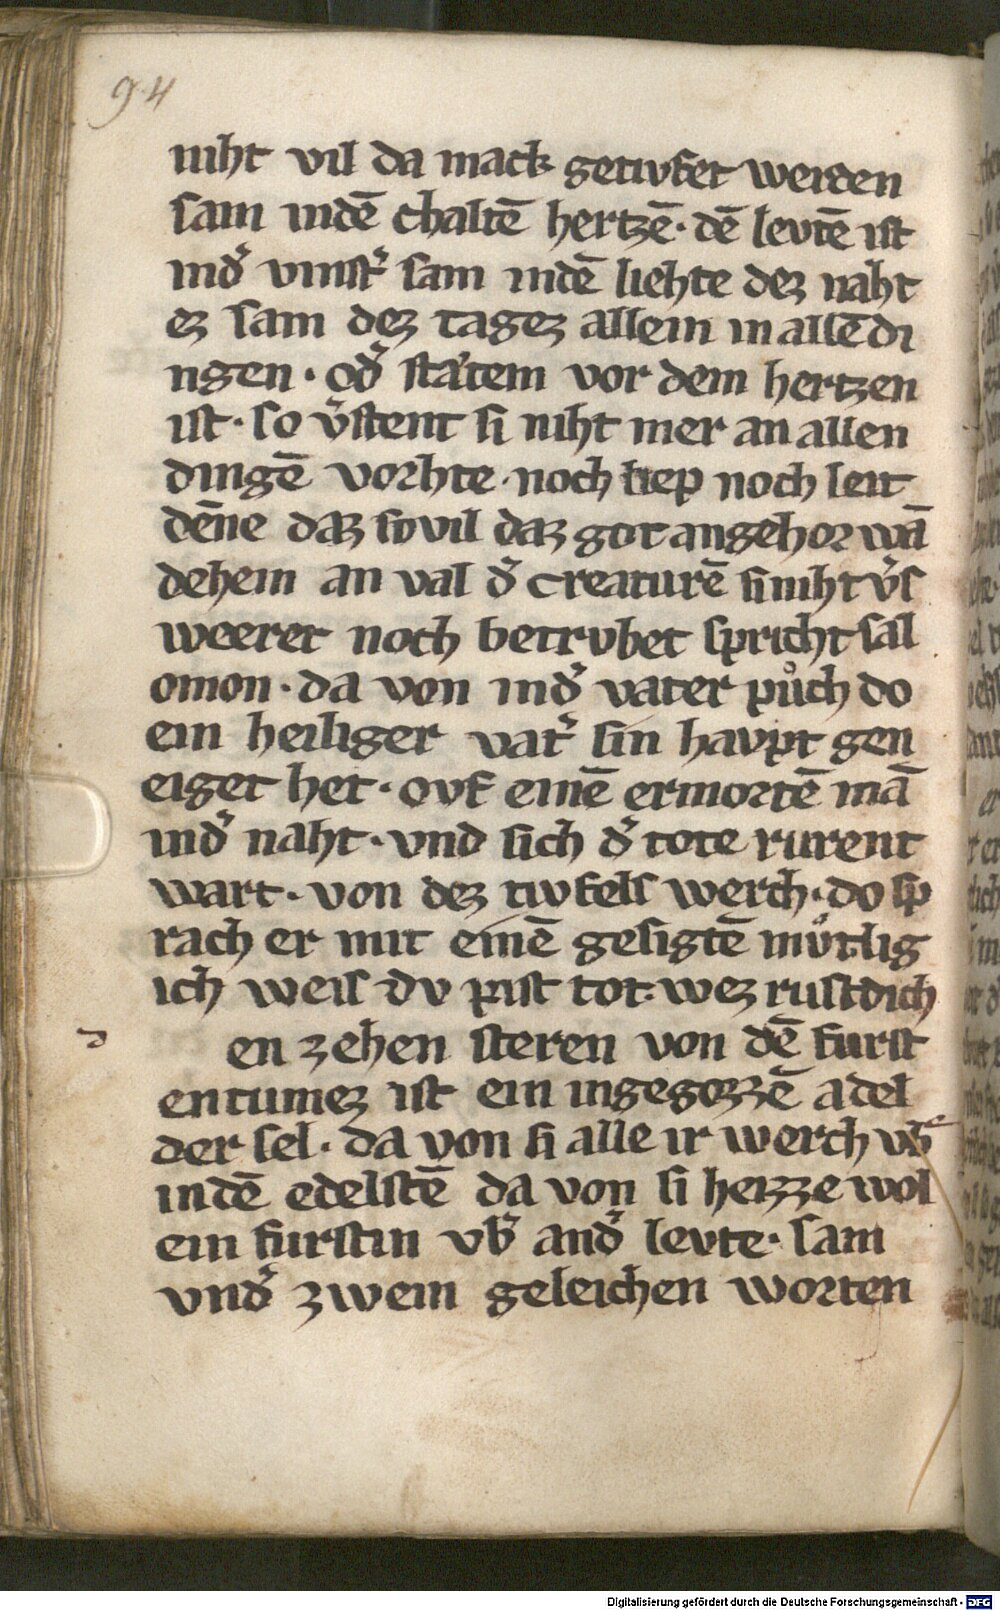 94
niht vil da mack getivfet werden
sam indē chaltē hertzē · dē levtē ist
ind᷑ vinst᷑ sam indē liehte dez naht
ez sam dez tagez allein in allē di
ngen · od᷑ statem vor dem hertzen
ist · so v᷑stent si niht mer an allen
dingē vorhte · noch liep noch leit
dēne daz so vil daz got angehor wā
dehein an val d᷑ creaturē si niht v᷑s
weeret noch betrvbet spricht sal
omon · da von ind᷑ vater půch do
ein heiliger vat᷑ sin havpt gen
eiget het · ovf einē ermortē mā
ind᷑ naht · vnd sich d᷑ tote rurent
wart · von dez tivfels werch · do sp
rach er mit einē gesigtē můtlig
ich weis dv pist tot · wez rustdich
d
en zehen steren von dē furst
entumez ist ein ingegozzē adel
der sel · da von si alle ir werch vb᷑
indē edelstē da von si heizze wol
ein furstin vb᷑ and᷑ levte · sam
vnd᷑ zwein geleichen worten
Digitalisierung gefördert durch die Deutsche Forschungsgemeinschaft - DFG